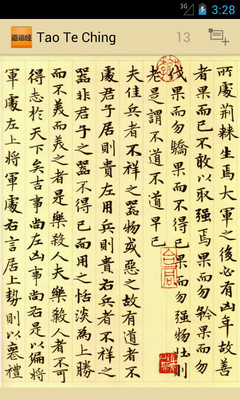 3G 3:28
道德经 Tao Te Ching 13
所處荊棘生焉大軍之後必有凶年故善
者果而已不敢以取强焉果而勿矜果而勿
伐果而勿驕果而不得已果而勿强物壯則
老是謂不道不道早已
夫佳兵者不祥之器物或惡之故有道者不
處君子居則貴左用兵則貴右兵者不祥之
器非君子之器不得已而用之恬淡為上勝
而不美而美之者是樂殺人夫樂殺人者不可
得志於天下矣吉事尚左凶事尚右是以偏將
軍處左上將軍處右言居上勢則以喪禮